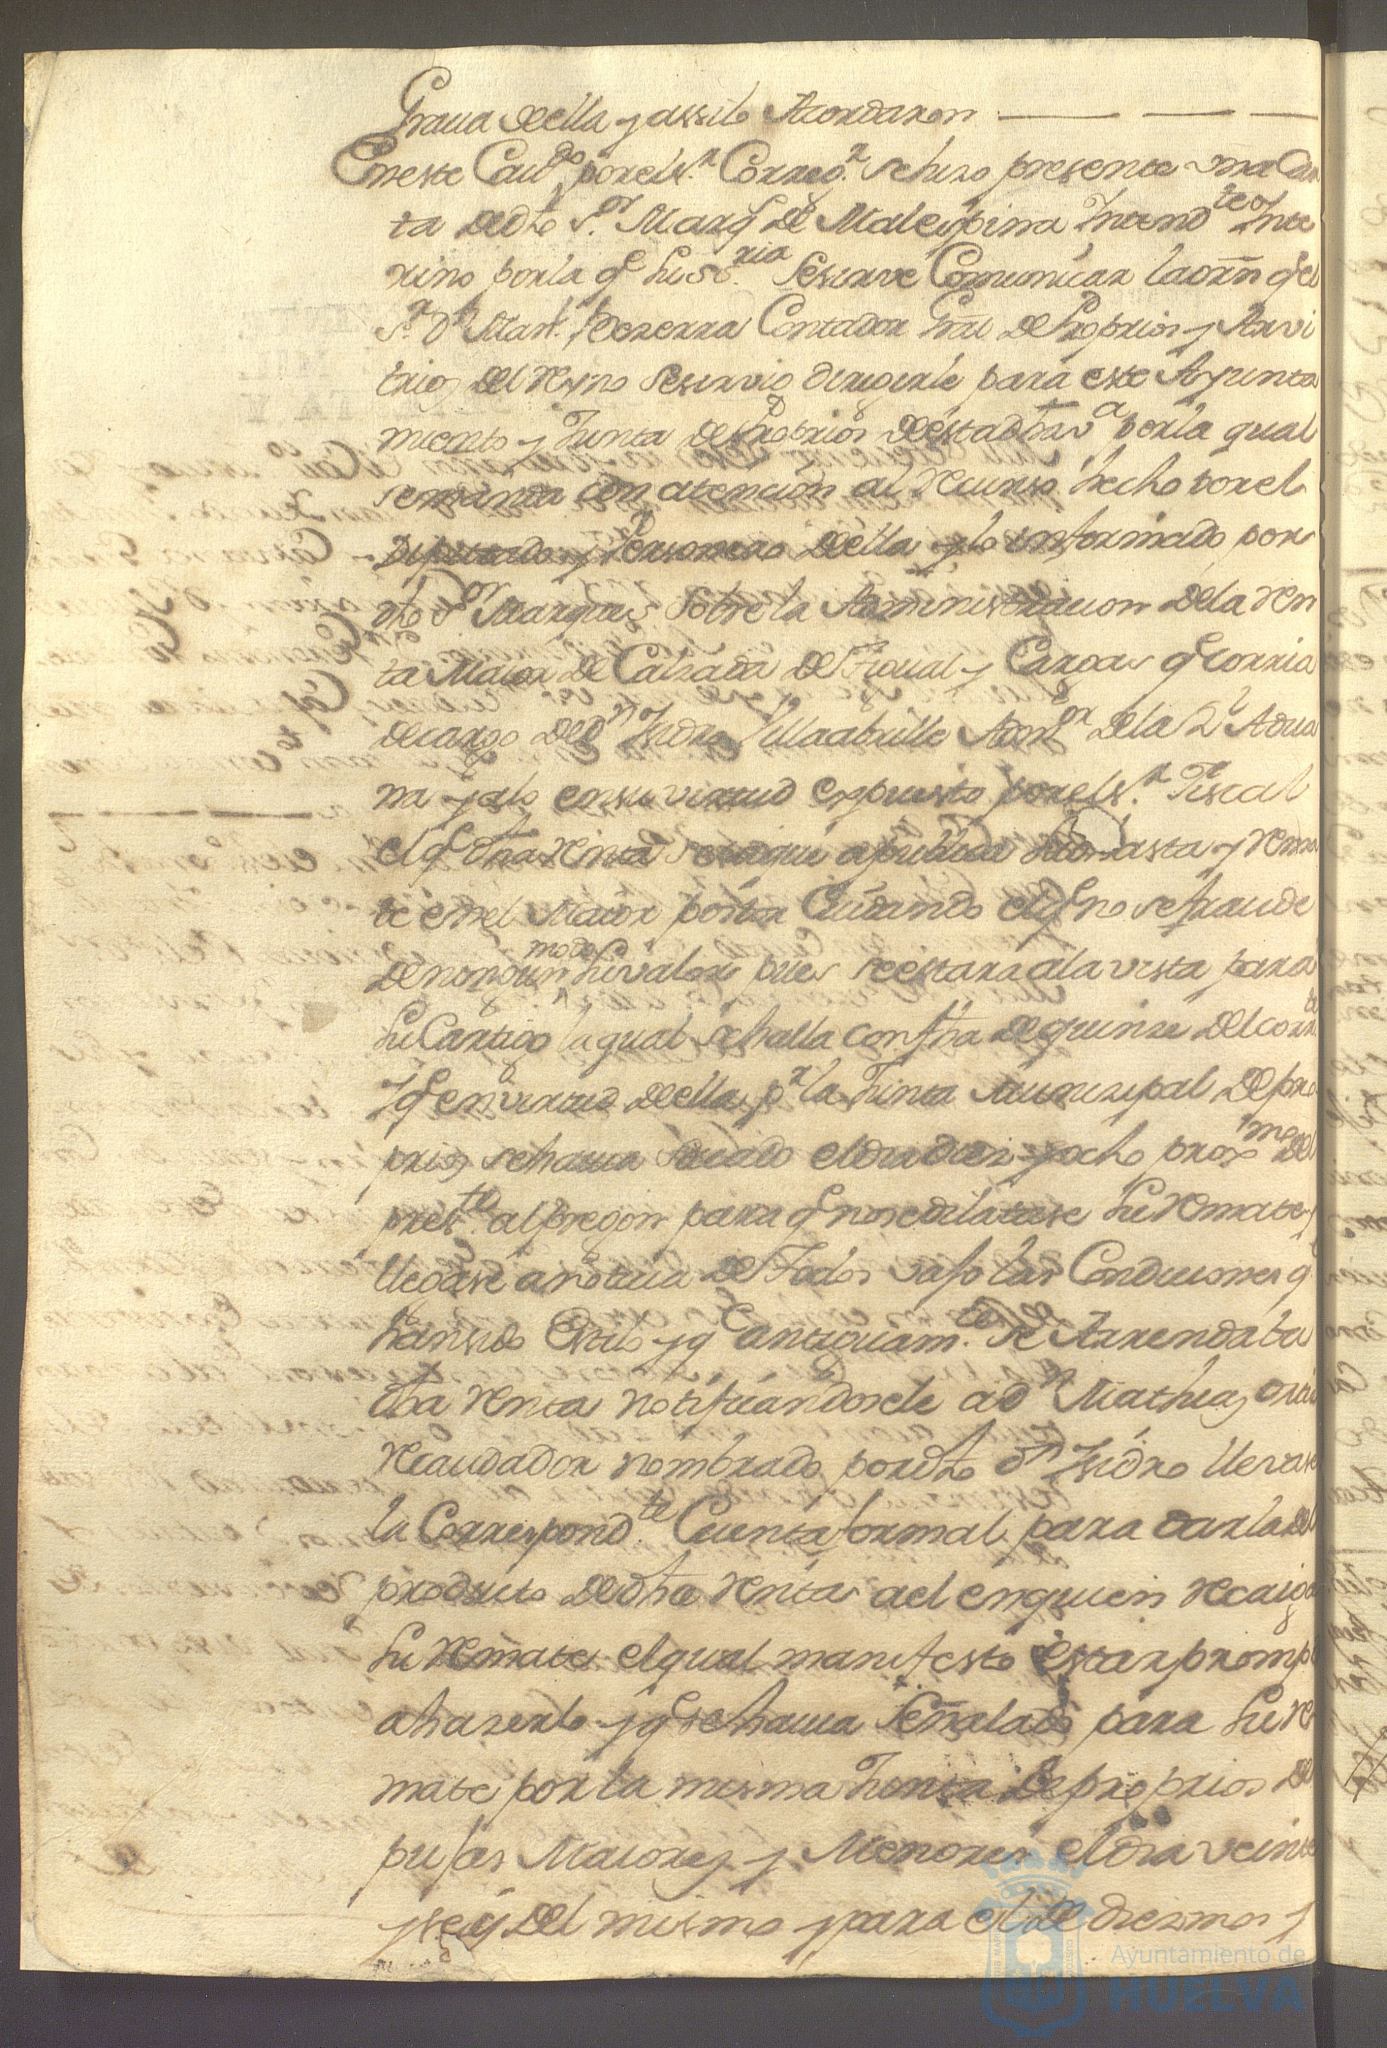 Graua de ella y assi lo Acordaron
En este Cauᵈᵒ por el Sʳ Corregʳ se hizo presente una Car
ta de dho Sᵒʳ Marqˢ de Malespina Yntendᵗᵉ Ynte
rino por la q̃ su Sʳⁱᵃ se sirve Comunicar la orn̄ q̃ el
Sʳ Dⁿ Manˡ Bezerra Contador Gral de Proprios y Arvi
trios del reyno se sirvio dirigirle para este Ayunta
miento y Junta de Proprios de esta dha vᵃ por la qual
se manda con atencion al recurso hecho por el
Diputado y Personero de ella y lo informado por
dho Sᵒʳ Marques sobre la Administracion de la ren
ta Maior de Calzada de Ygual y Cargas q̃ corria
de cargo de Dⁿ Ysidro Villaabrille Admᵒʳ de la Rˡ Adua
na y a lo en su virtud expuesto por el Sʳ Fiscal
el q̃ dha renta se saque a publica subhasta y rema
te en el Maior postor Cuidando el q̃ no se fraude
de ningun modo su valor pues se estara a la vista para
su Castigo la qual se halla con fha de quinze del corrᵗᵉ
Y q̃ en virtud de ella pʳ la Junta Municipal de pro
prios se havia sacado el dia diez y ocho proxᵐᵒ del
presᵗᵉ al pregon para q̃ no se dilatase su remate y
llegase a noticia de todos vajo las Condiciones q̃
han sido Estilo y q̃ antiguamᵗᵉ se Arrendaba
dha renta notificandosele a Dⁿ Mathias
recaudador nombrado por dho Dⁿ Ysidro llevase
la Correspondᵗᵉ Cuenta formal para darla del
producto de dha rentas a el en quien recaiga
su remate el qual manifesto estar prompto
a hazerlo y q̃ se havia señalado para su re
mate por la misma Junta de proprios de
pujas Maiores y Menores el dia veinte
y seis del mismo y para el de diezmos y
Ayuntamiento de
HUELVA